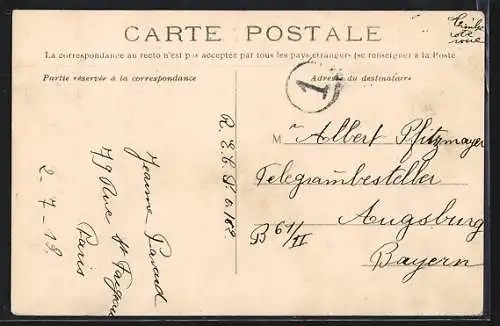 CARTE POSTALE
La correspondance au recto n'est pas acceptée par tous les pays étrangers (se renseigner à la Poste
Partie réservée à la correspondance
Adresse du destinataire
Timbre
côté
vue
1
M r Albert Pfitzmayer
Telegrambesteller
Augsburg
B 61/II
Bayern
R. E. C. P. 6162
Jeanne
79 Rue St
Paris
2-7-13.